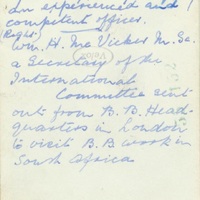 An experienced and
competent officer.
(Right)
Wm. H. Mc Vicker M. Sc.
a Secretary of the
International
Committee sent
out from B. B. Head-
quarters in London
to visit B.B work in
South Africa